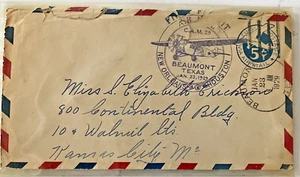 FIRST FLIGHT
C.A.M. 29
BEAUMONT
TEXAS
JAN. 23, 1929
NEW ORLEANS HOUSTON
5
BEAUMONT
JAN
23
1929
Miss S. Elizabeth
800 Continental Bldg
10 & Walnut Sts
Kansas City Mo